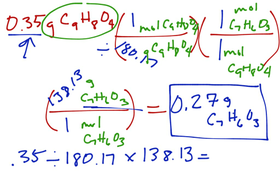 0.35 g C9H8O4 (1 mol C9H8O4 / 180.17 g C9H8O4) (1 mol C7H6O3 / 1 mol C9H8O4)
÷
(138.13 g C7H6O3 / 1 mol C7H6O3) = 0.27 g C7H6O3
.35 ÷ 180.17 × 138.13 =